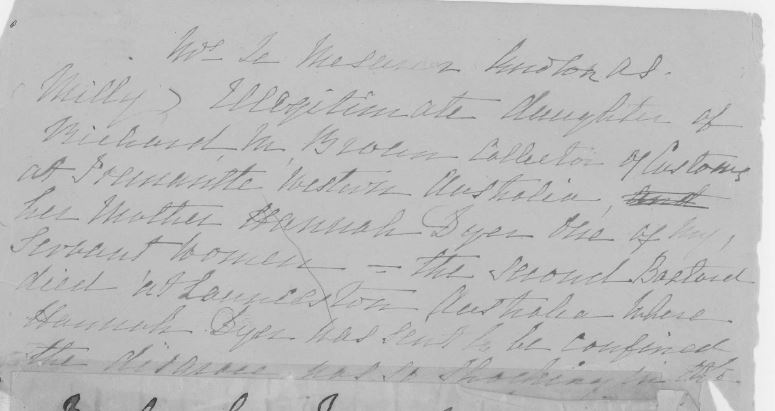 Mrs Le Mesurier known as
(Milly) Illegitimate daughter of
Richard M. Broun Collector of Customs
at Fremantle Western Australia, and
her Mother Hannah Dyer One of my
Servant Women - the second Bastard
died at Launceston Australia where
Hannah Dyer was sent to be confined
the disgrace was so shocking in the